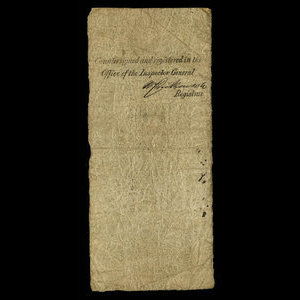 Countersigned and registered in the
Office of the Inspector General
Registrar